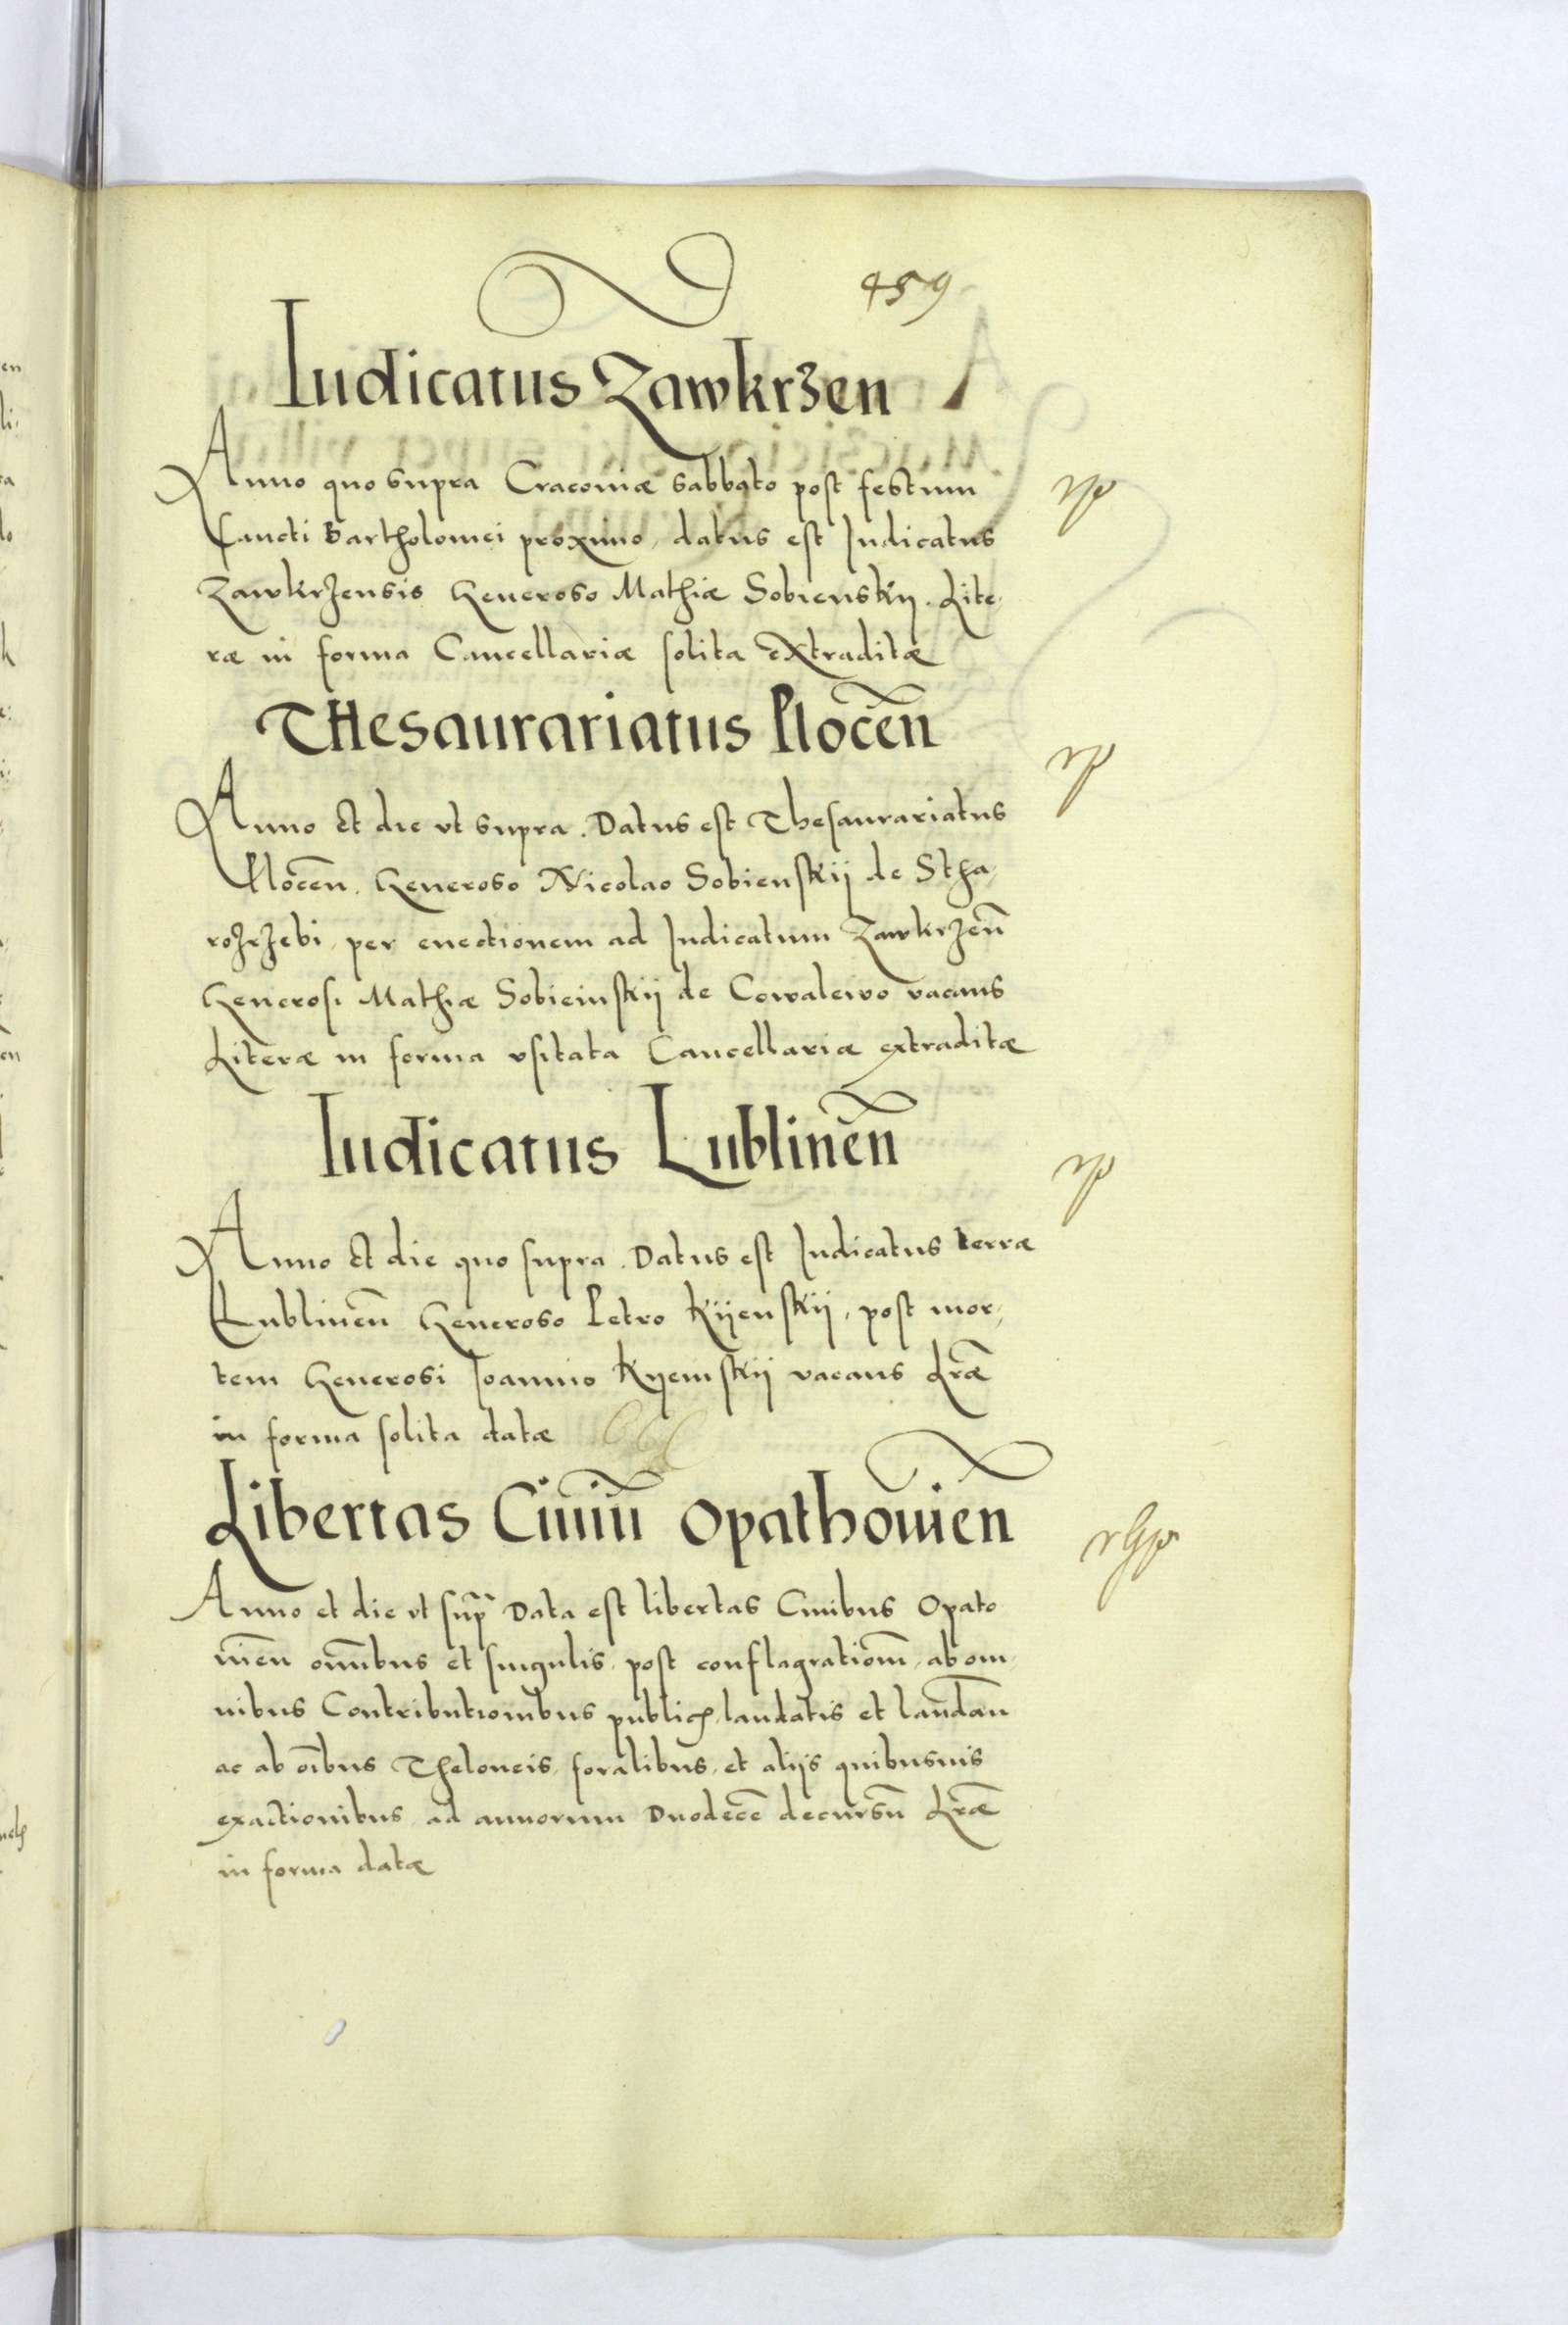 459
Iudicatus Zawkrzen
Anno quo supra Cracouiæ sabbato post festum
sancti Bartholomei proximo, datus est Iudicatus
Zawkrzensis Generoso Mathiæ Sobienskÿ. Lite,
ræ in forma Cancellariæ solita extraditæ
Thesaurariatus Plocen̄
Anno et die vt supra. Datus est Thesaurariatus
Plocen̄. Generoso Nicolao Sobienskij de Stha,
rozrzebi, per euectionem ad Iudicatum Zawkrzen̄
Generosi Mathiæ Sobieinskij de Cowalewo vacans
Literæ in forma vsitata Cancellariæ extraditæ
Iudicatus Lublinen̄
Anno et die quo supra. Datus est Iudicatus terræ
Lublinen̄ Generoso Petro Kijenskij, post mor,
tem Generosi Joannis Kyeinskij vacans Lr̄æ
in forma solita datæ
Libertas Ciuiū Opathouien̄
Anno et die vt sup̄ Data est libertas Ciuibus Opato
uien̄ om̄ibus et singulis, post conflagratiōm, ab om,
nibus Contributionibus public, laudatis et laudan̄
ac ab oībus Theloneis, foralibus, et alijs quibusuis
exactionibus ad annorum Duodecē decursū Lr̄æ
in forma datæ